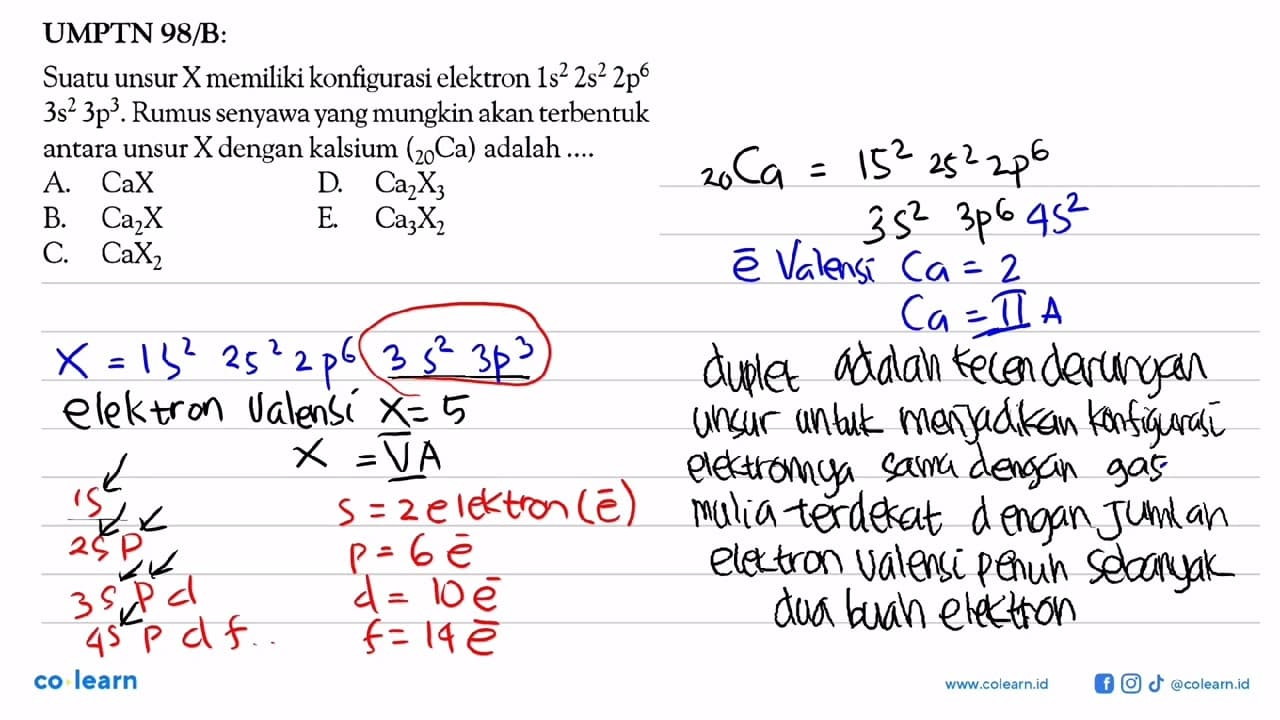 UMPTN 98/B:
Suatu unsur X memiliki konfigurasi elektron 1s² 2s² 2p⁶
3s² 3p³. Rumus senyawa yang mungkin akan terbentuk
antara unsur X dengan kalsium (₂₀Ca) adalah ....
A. CaX D. Ca₂X₃
B. Ca₂X E. Ca₃X₂
C. CaX₂
X = 1s² 2s² 2p⁶ 3s² 3p³
elektron Valensi X = 5
X = VA
1s
2s p
3s p d
4s p d f..
s = 2 elektron (ē)
p = 6 ē
d = 10 ē
f = 14 ē
₂₀Ca = 1s² 2s² 2p⁶
3s² 3p⁶ 4s²
ē Valensi Ca = 2
Ca = II A
duplet adalah kecenderungan
unsur untuk menjadikan konfigurasi
elektronnya sama dengan gas
mulia terdekat dengan jumlah
elektron valensi penuh sebanyak
dua buah elektron
co learn
www.colearn.id
@colearn.id